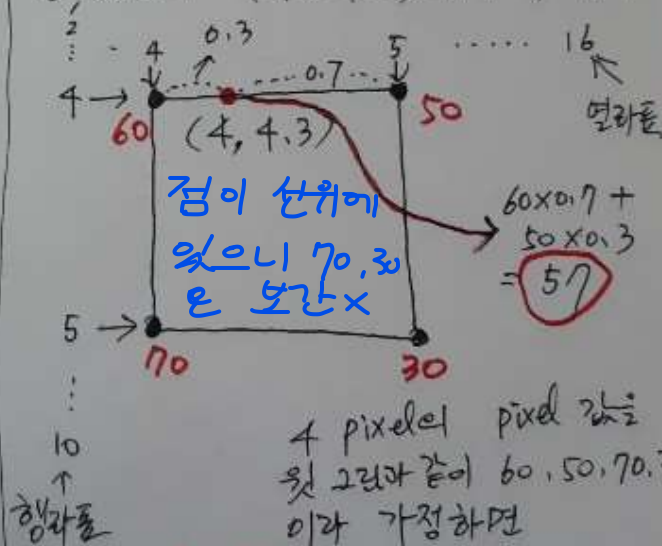 2
0.3
4 5 ...... 16
0.7
4 →
60 50
(4, 4.3)
열좌표
점이 선위에
있으니 70,30
은 보간 x
60×0.7 +
50×0.3
= 57
5 →
70 30
10
행좌표
4 pixel의 pixel 값을
윗 그림과 같이 60, 50, 70,
이라 가정하면